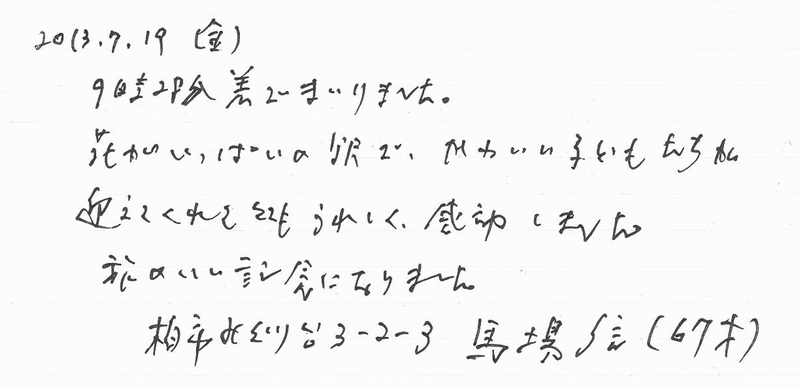 2013.7.19 (金)
9時28分着でまいりました。
花がいっぱいの駅で、かわいい子どもたちが
迎えてくれとてもうれしく、感動しました
旅のいい記念になりました。
柏市 台3-2-3 馬場 信(67才)